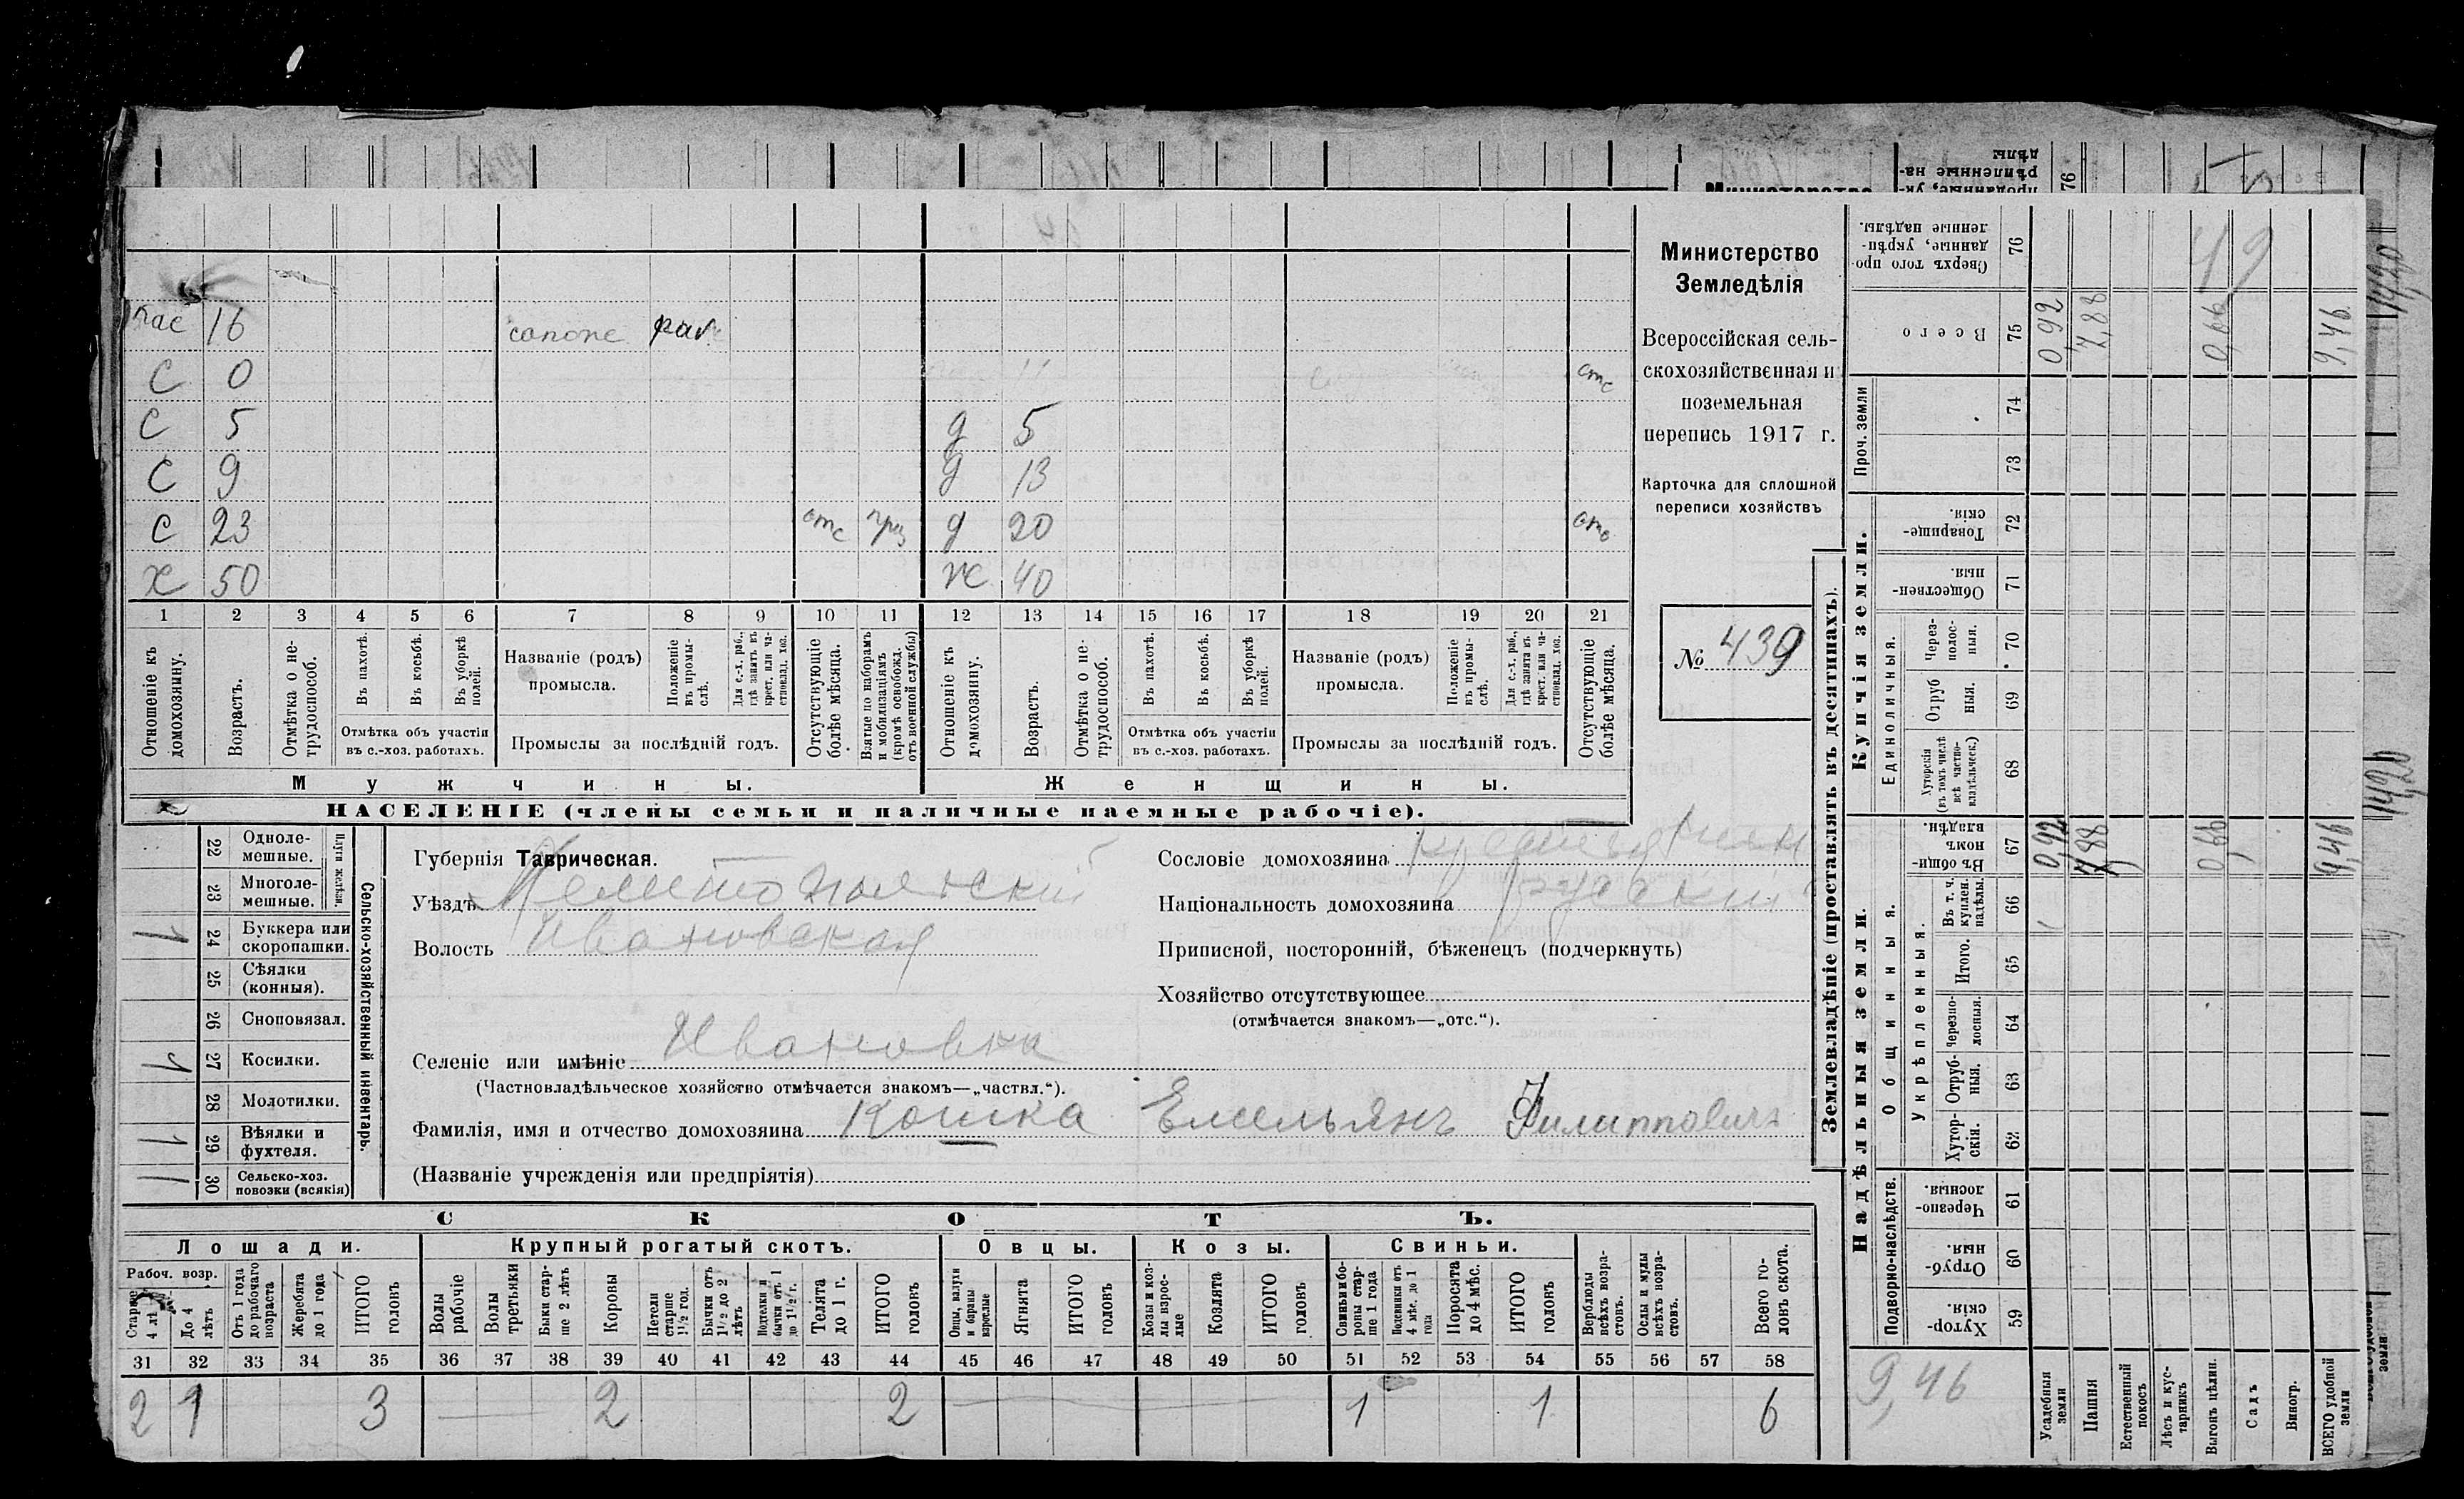 Министерство
Земледѣлія
Всероссійская сель-
скохозяйственная и
поземельная
перепись 1917 г.
Карточка для сплошной
переписи хозяйствъ
№ 439
16 сапоже
С 0 отс
С 5 д 5
С 9 д 13
С 23 отс д 20 отс
х 50 ж 40
1 2 3 4 5 6 7 8 9 10 11 12 13 14 15 16 17 18 19 20 21
Отношеніе къ домохозяину.
Возрастъ.
Отмѣтка о не-
трудоспособ.
Въ пахотѣ.
Въ косьбѣ.
Въ уборкѣ
полей.
Отмѣтка объ участіи
въ с.-хоз. работахъ.
Названіе (родъ)
промысла.
Положеніе
въ промы-
слѣ.
Для с.-х. раб.,
гдѣ занятъ въ
крест. или ча-
стновлад. хоз.
Промыслы за послѣдній годъ.
Отсутствующіе
болѣе мѣсяца.
Взятые по наборамъ
и мобилизаціямъ
(кромѣ освобожд.
отъ военной службы)
Отношеніе къ
домохозяину.
Возрастъ.
Отмѣтка о не-
трудоспособ.
Въ пахотѣ.
Въ косьбѣ.
Въ уборкѣ
полей.
Отмѣтка объ участіи
въ с.-хоз. работахъ.
Названіе (родъ)
промысла.
Положеніе
въ промы-
слѣ.
Для с.-х. раб.,
гдѣ занята въ
крест. или ча-
стновлад. хоз.
Промыслы за послѣдній годъ.
Отсутствующіе
болѣе мѣсяца.
Мужчины.
Женщины.
НАСЕЛЕНІЕ (члены семьи и наличные наемные рабочіе).
Сельско-хозяйственный инвентарь.
Плуги желѣзн.
22 Одноле-
мешные.
23 Многоле-
мешные.
1 24 Буккера или
скоропашки.
25 Сѣялки
(конныя).
26 Сноповязал.
1 27 Косилки.
28 Молотилки.
1 29 Вѣялки и
фухтеля.
1 30 Сельско-хоз.
повозки (всякія)
Губернія Таврическая.
Уѣздъ Мелитопольскій
Волость Ивановская
Селеніе или имѣніе Ивановка
(Частновладѣльческое хозяйство отмѣчается знакомъ—„частвл.“).
Фамилія, имя и отчество домохозяина Кошка Емельянъ Филипповичъ
(Названіе учрежденія или предпріятія)
Сословіе домохозяина крестьянин
Національность домохозяина русскій
Приписной, посторонній, бѣженецъ (подчеркнуть)
Хозяйство отсутствующее
(отмѣчается знакомъ—„отс.“).
СКОТЪ.
Лошади.
Рабоч. возр.
Старше
4 лѣтъ
До 4
лѣтъ
Отъ 1 года
до рабочаго
возраста
Жеребята
до 1 года
ИТОГО
головъ
Крупный рогатый скотъ.
Волы
рабочіе
Волы
третьяки
Быки стар-
ше 2 лѣтъ
Коровы
Нетели
старше
1½ год.
Бычки отъ
1½ до 2
лѣтъ
Подтелки и
бычки отъ 1
до 1½ г.
Телята
до 1 г.
ИТОГО
головъ
Овцы.
Овцы, валухи
и бараны
взрослые
Ягнята
ИТОГО
головъ
Козы.
Козы и коз-
лы взрос-
лые
Козлята
ИТОГО
головъ
Свиньи.
Свиньи и бо-
ровы стар-
ше 1 года
Подсвинки отъ
4 мѣс. до 1
года
Поросята
до 4 мѣс.
ИТОГО
головъ
Верблюды
всѣхъ возра-
стовъ.
Ослы и мулы
всѣхъ возра-
стовъ.
Всего го-
ловъ скота.
31 32 33 34 35 36 37 38 39 40 41 42 43 44 45 46 47 48 49 50 51 52 53 54 55 56 57 58
2 1 3 2 2 1 1 6
Землевладѣніе (проставлять въ десятинахъ).
Сверхъ того про-
данные, укрѣп-
ленные надѣлы.
76
49
Всего
75
0,92 7,88 0,66 9,46
Проч. земли
74
73
Купчія земли.
Товарище-
скія.
72
Обществен-
ныя.
71
Единоличныя.
Через-
полос-
ныя.
70
Отруб
ныя.
69
Хуторскія
(въ томъ числѣ
всѣ частно-
владѣльческ.)
68
Надѣльныя земли.
Общинныя.
Въ общин-
номъ
владѣн.
67
0,92 7,88 0,66 9,46
Укрѣпленныя.
Въ т. ч.
куплен.
надѣлы.
66
Итого.
65
Черезпо-
лосныя.
64
Отруб-
ныя.
63
Хутор-
скія.
62
Подворно-наслѣдств.
Черезпо-
лосныя.
61
Отруб-
ныя.
60
Хутор-
скія.
59
9,46
Усадебныя
земли
Пашня
Естественный
покосъ
Лѣсъ и кус-
тарникъ
Выгонъ цѣлин.
Садъ
Виногр.
ВСЕГО удобной
земли
14,20
14,20